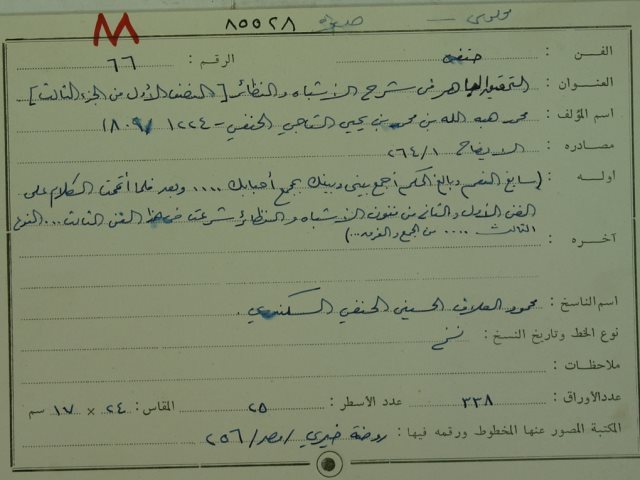 M ٨٥٥٢٨
الفن : حنفيه الرقم : ٦٦
العنوان : التحقيق الباهر في شرح الأشباه والنظائر [ النصف الأول من الجزء الثالث ]
اسم المؤلف : محمد هبة الله بن محمد بن يحيى التاجي الحنفي - ١٢٢٤ / ٨٠٩ا )
مصادره : الايضاح ٢٦٤/١
اوله : ( سابغ النعم وبالغ الحكم اجمع بيني وبينك بجمع أحبابك .... وبعد فلما أتممت الكلام على
الفن الأول والثاني من فنون الأشباه والنظائر شرعت في هذا الفن الثالث ... النوع
الثالث .... من الجمع والفرق ... )
آخره :
اسم الناسخ : محمود العلاف الحسيني الحنفي السكندري .
نوع الخط وتاريخ النسخ : نسخ
ملاحظات :
عدد الأوراق : ٣٣٨ عدد الأسطر : ٢٥ المقاس : ٢٤ × ١٧ سم
المكتبة المصور عنها المخطوط ورقمه فيها : روضة خيري / مصر / ٢٥٦